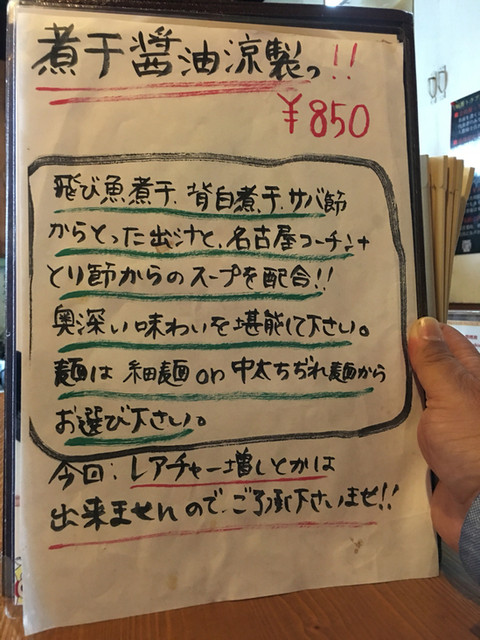 煮干醤油涼製っ!!
¥850
飛び魚煮干、背白煮干、サバ節
からとった出汁と、名古屋コーチン+
とり節からのスープを配合!!
奥深い味わいを堪能して下さい。
麺は 細麺 or 中太ちぢれ麺から
お選び下さい。
今回:レアチャー増しとかは
出来ませんので、ご了承下さいませ!!